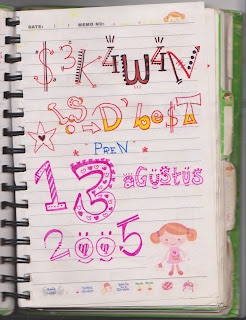 DATE: MEMO NO:
$3K4W4N
!S D'be$T
PREN
13 aGüStüS
2005